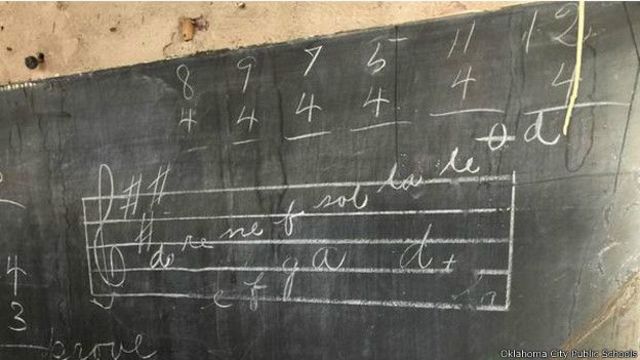 8 9 7 5 11 12
4 4 4 4 4 4
d
# #
do re me f sol la te
#
e f g a d t la
4
3
prove
Oklahoma City Public Schools